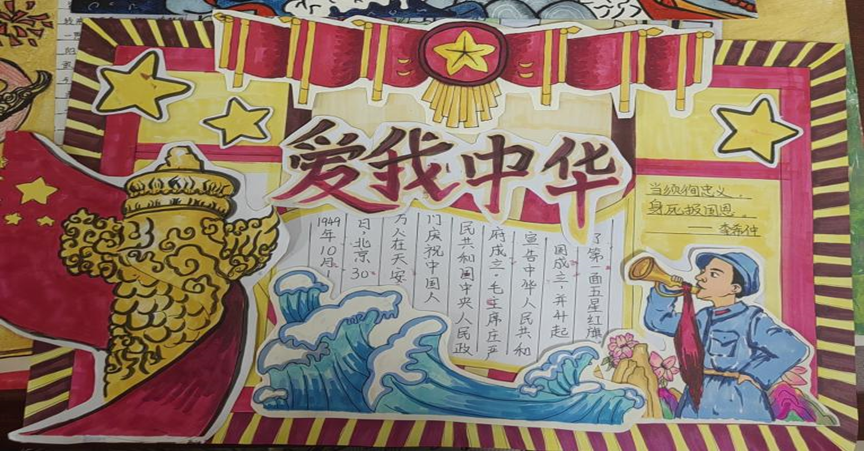 爱我中华
1949年10月1
日,北京30
万人在天安
门庆祝中国人
民共和国中央人民政
府成立,毛主席庄严
宣告中华人民共和
国成立,并升起
了第一面五星红旗
当须徇忠义,
身死报国恩。
——李希仲